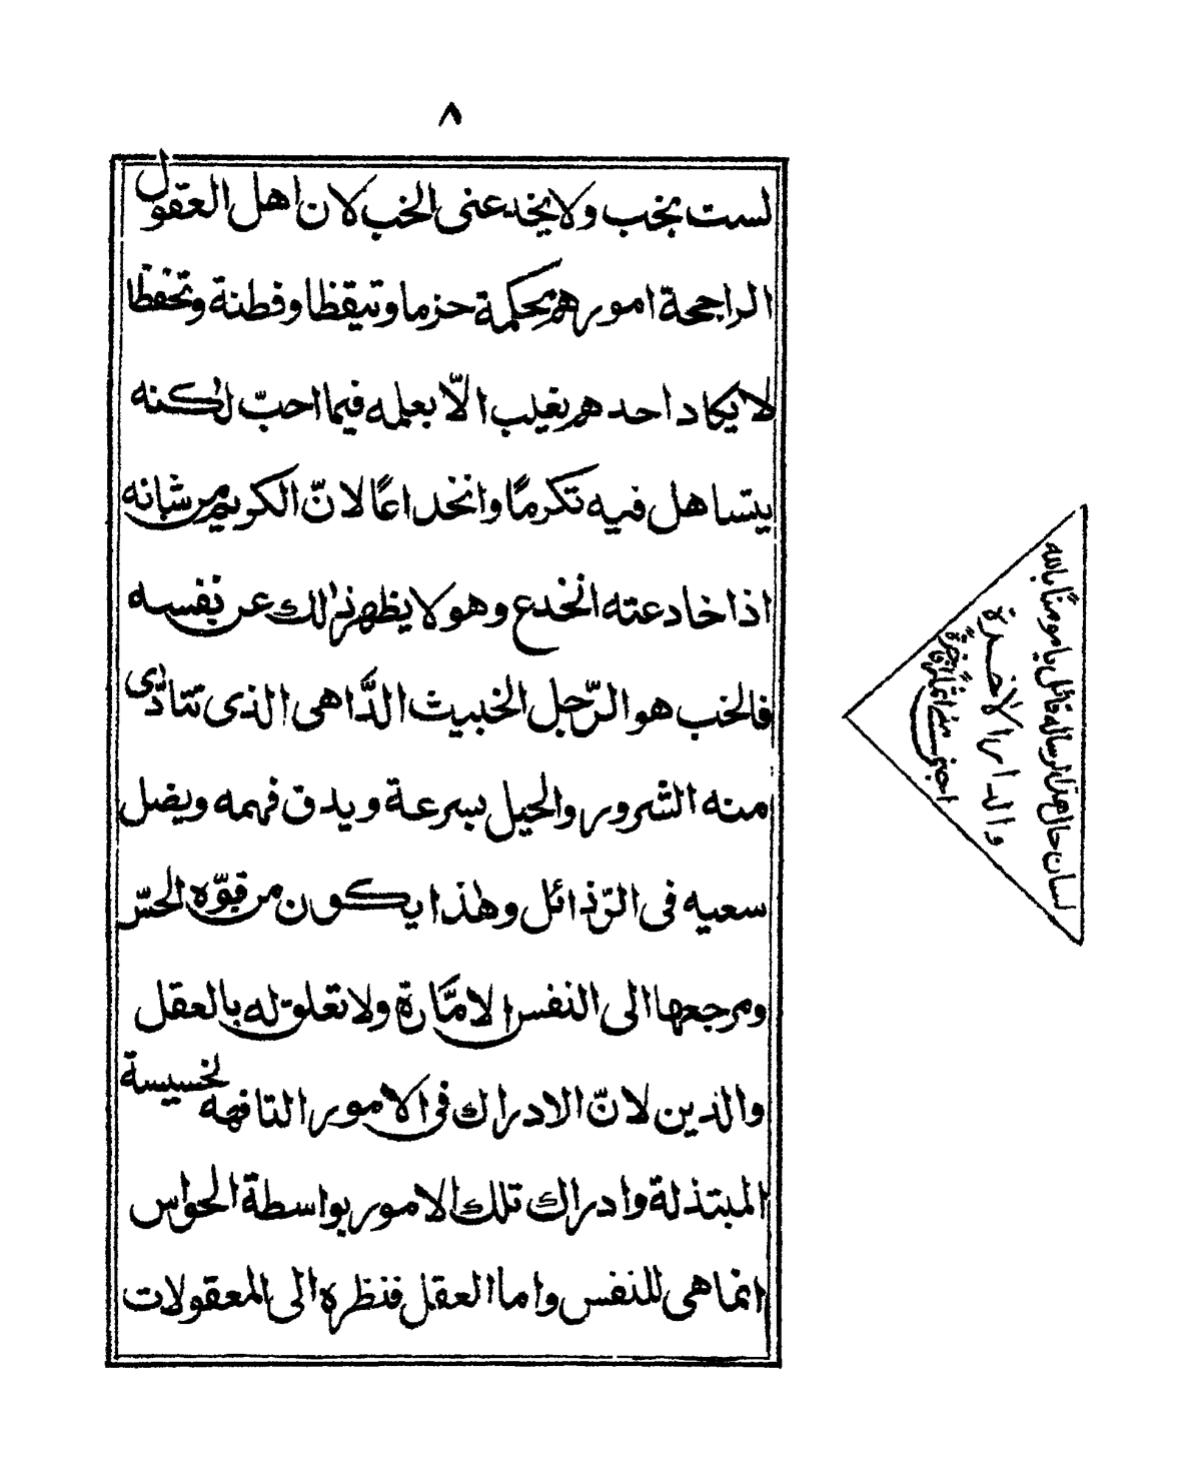 ٨
لست بخب ولا يخدعنى الخب لان اهل العقول
الراجحة امورهم محكمة حزما وتيقظا وفطنة وتحفظا
لا يكاد احدهم يغلب الّا بعلمه فيما احبّ لٰكنه
يتساهل فيه تكرمًا وانخداعًا لانّ الكريم من شانه
اذا خادعته انخدع وهو لا يظهر ذٰلك عن نفسه
فالخب هو الرّجل الخبيث الدَّاهى الذى تتادّى
منه الشرور والحيل بسرعة ويدق فهمه ويضل
سعيه فى الرّذائل وهٰذا يكون من قوّه الحسّ
ومرجعها الى النفس الامَّارة ولا تعلق له بالعقل
والدين لانّ الادراك فى الامور التافهه الخسيسة
المبتذلة وادراك تلك الامور بواسطة الحواس
انما هى للنفس واما العقل فنظره الى المعقولات
لسان حال هذا الرساله قائل يا مومنًا بالله
والدار الاخرة
اجنى